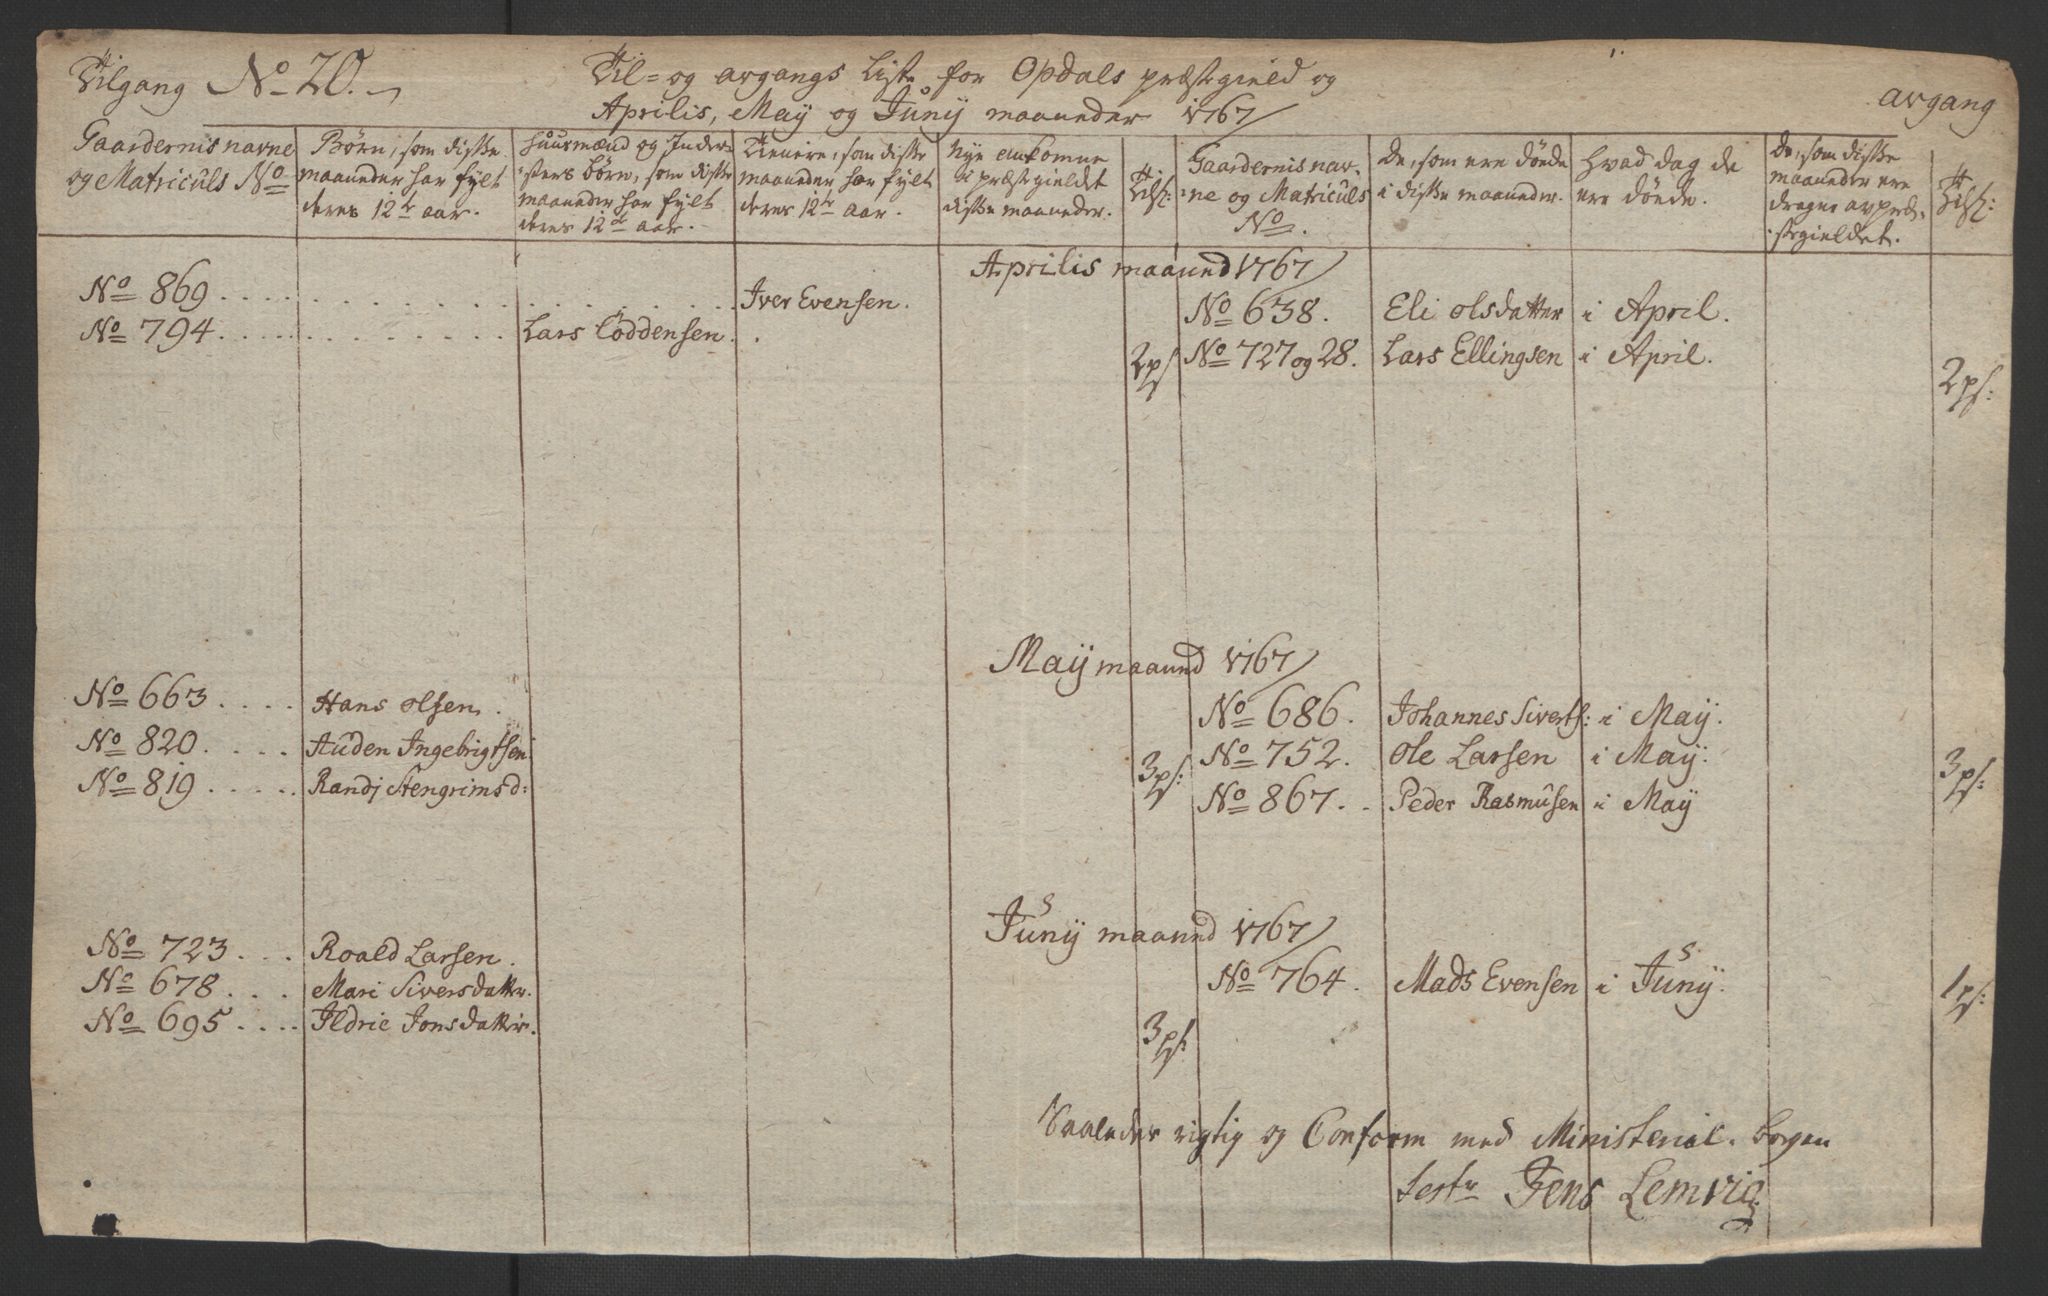 Tilgang No 20.
Til= og avgangs Liste for Opdals præstegield og
Aprilis, May og Juny maaneder 1767/
avgang
Gaardernis navne og Matriculs No
Børn, som disse maaneder har fylt deres 12te aar.
Huusmænd og Inder-
sters børn, som disse maaneder har fylt deres 12te aar.
Tienere, som disse maaneder har fylt deres 12te aar.
Nye ankomne i præstegieldet disse maaneder.
Gaardernis nav-
ne og Matriculs No.
De, som ere döede i disse maaneder.
Hvad dag de ere döede.
De, som disse maaneder ere dragne av præ-
stegieldet.
Aprilis maaned 1767/
No 869 . . . . Iver Evensen.
No 794 . . . . Lars Coddensen.
2ps
No 638. Eli Olsdatter i April.
No 727 og 28. Lars Ellingsen i April.
2ps:
May maaned 1767/
No 663 . . . . Hans Olsen.
No 820. . . . Auden Ingebrigtsen
No 819 . . . . Randj Stengrimsd:
3ps:
No 686. Johannes Siverts: i May.
No 752. Ole Larsen i May.
No 867. . Peder Rasmusen i May
3ps:
Juny maaned 1767/
No 723 . . . Roald Larsen.
No 678 . . . Mari Siversdatter.
No 695 . . . . Ildrie Jonsdatter.
3ps:
No 764. Mads Evensen i Juny.
1ps:
Saaledes rigtig og Conform med Ministerial-bogen
Jens Lemvig